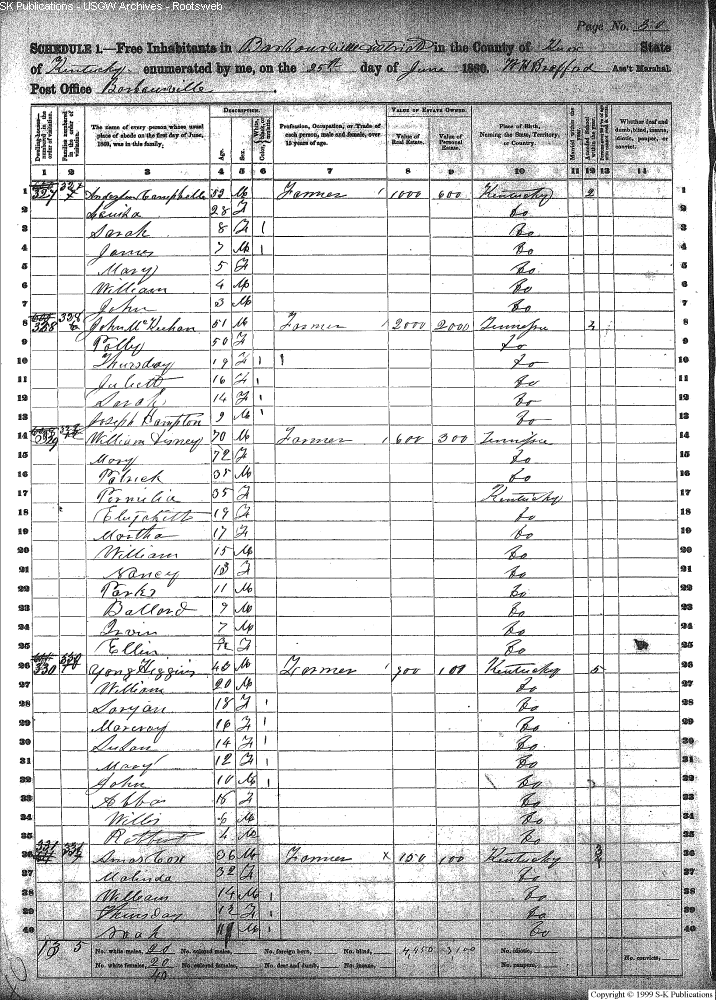 SK Publications - USGW Archives - Rootsweb
Page No. 50
SCHEDULE 1.—Free Inhabitants in Barbourville District in the County of Knox State
of Kentucky enumerated by me, on the 25th day of June 1860. Ass't Marshal
Post Office Barbourville
DESCRIPTION. VALUE OF ESTATE OWNED.
Dwelling-houses— numbered in the order of visitation. Families numbered in the order of visitation. The name of every person whose usual place of abode on the first day of June, 1860, was in this family. Age. Sex. Color, White, black, or mulatto. Profession, Occupation, or Trade of each person, male and female, over 15 years of age. Value of Real Estate. Value of Personal Estate. Place of Birth, Naming the State, Territory, or Country. Married within the year. Attended School within the year. Whether deaf and dumb, blind, insane, idiotic, pauper, or convict.
1 2 3 4 5 6 7 8 9 10 11 12 13 14
1 327 Anderson Camphelle 52 M Farmer 1000 600 Kentucky 2 1
2 28 F Do 2
3 Sarah 8 F / Do 3
4 James 7 M / Do 4
5 Mary 5 F Do 5
6 William 4 M Do 6
7 John 3 M Do 7
8 328 John McKeehan 51 M Farmer 2000 2000 Tennessee 8
9 Polly 50 F Do 9
10 Thursday 19 F / Do 10
11 Juliett 16 F / Do 11
12 Sarah 14 F / Do 12
13 Joseph Hampton 9 M / Do 13
14 329 William Disney 70 M Farmer 600 300 Tennessee 14
15 Mary 72 F Do 15
16 Patrick 35 M Do 16
17 Permilia 35 F Kentucky 17
18 Elizabeth 19 F Do 18
19 Martha 17 F Do 19
20 William 15 M Do 20
21 Nancy 13 F Do 21
22 Parks 11 M Do 22
23 Ballard 9 M Do 23
24 Irvin 7 M Do 24
25 Ellin F Do 25
26 330 Yong Higgins 40 M Farmer 100 Kentucky 5 26
27 William 20 M Do 27
28 Saryan 18 F / Do 28
29 16 F / Do 29
30 Susan 14 F / Do 30
31 Mary 12 F / Do 31
32 John 10 M / Do 32
33 Abba F Do 33
34 Willis 6 M Do 34
35 4 M Do 35
36 331 Amos Cox 36 M Farmer x 150 100 Kentucky 36
37 Malinda 32 F Do 37
38 William 14 M / Do 38
39 Thursday 12 F / Do 39
40 Noah M / Do 40
13 5 No. white males, 20 No. colored males, No. foreign born, No. blind, 4,450 3100 No. idiotic, No. convicts,
No. white females, 20 No. colored females, No. deaf and dumb, No. insane, No. paupers,
40
Copyright © 1999 S-K Publications